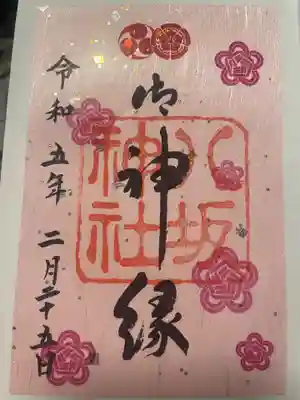 御神縁
八坂
神社
令和五年 二月二十五日